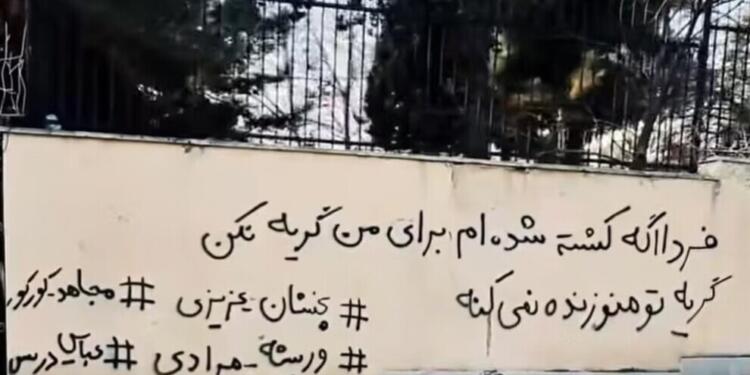 فردا اگه کشته شده ام برای من گریه نکن
گریه تو منو زنده نمی کنه
#پخشان_عزیزی #مجاهد_کورکور
#وریشه_مرادی #عباس_دریس